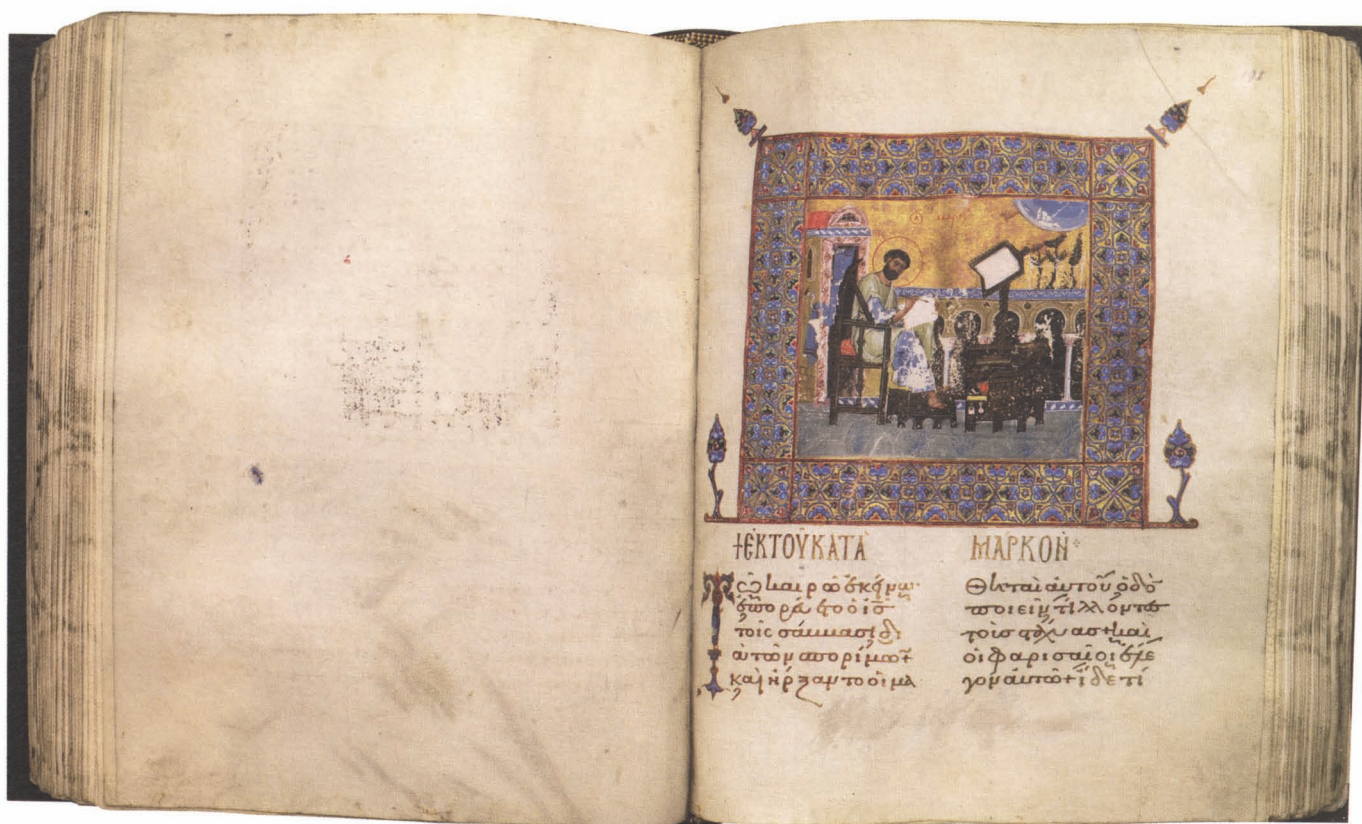 + ΕΚ ΤΟΥ ΚΑΤΑ ΜΑΡΚΟΝ
Τῶ καιρῶ ἐκείνω
ἐπορεύετο ὁ ἰς
τοῖς σάββασι δι
ὰ τῶν σπορίμων +
καὶ ἤρξαντο οἱ μα
θηταὶ αὐτοῦ ὁδὸν
ποιεῖν τίλλοντες
τοὺς στάχυας + καὶ
οἱ φαρισαῖοι ἔλε
γον αὐτῶ + ἴδε τί